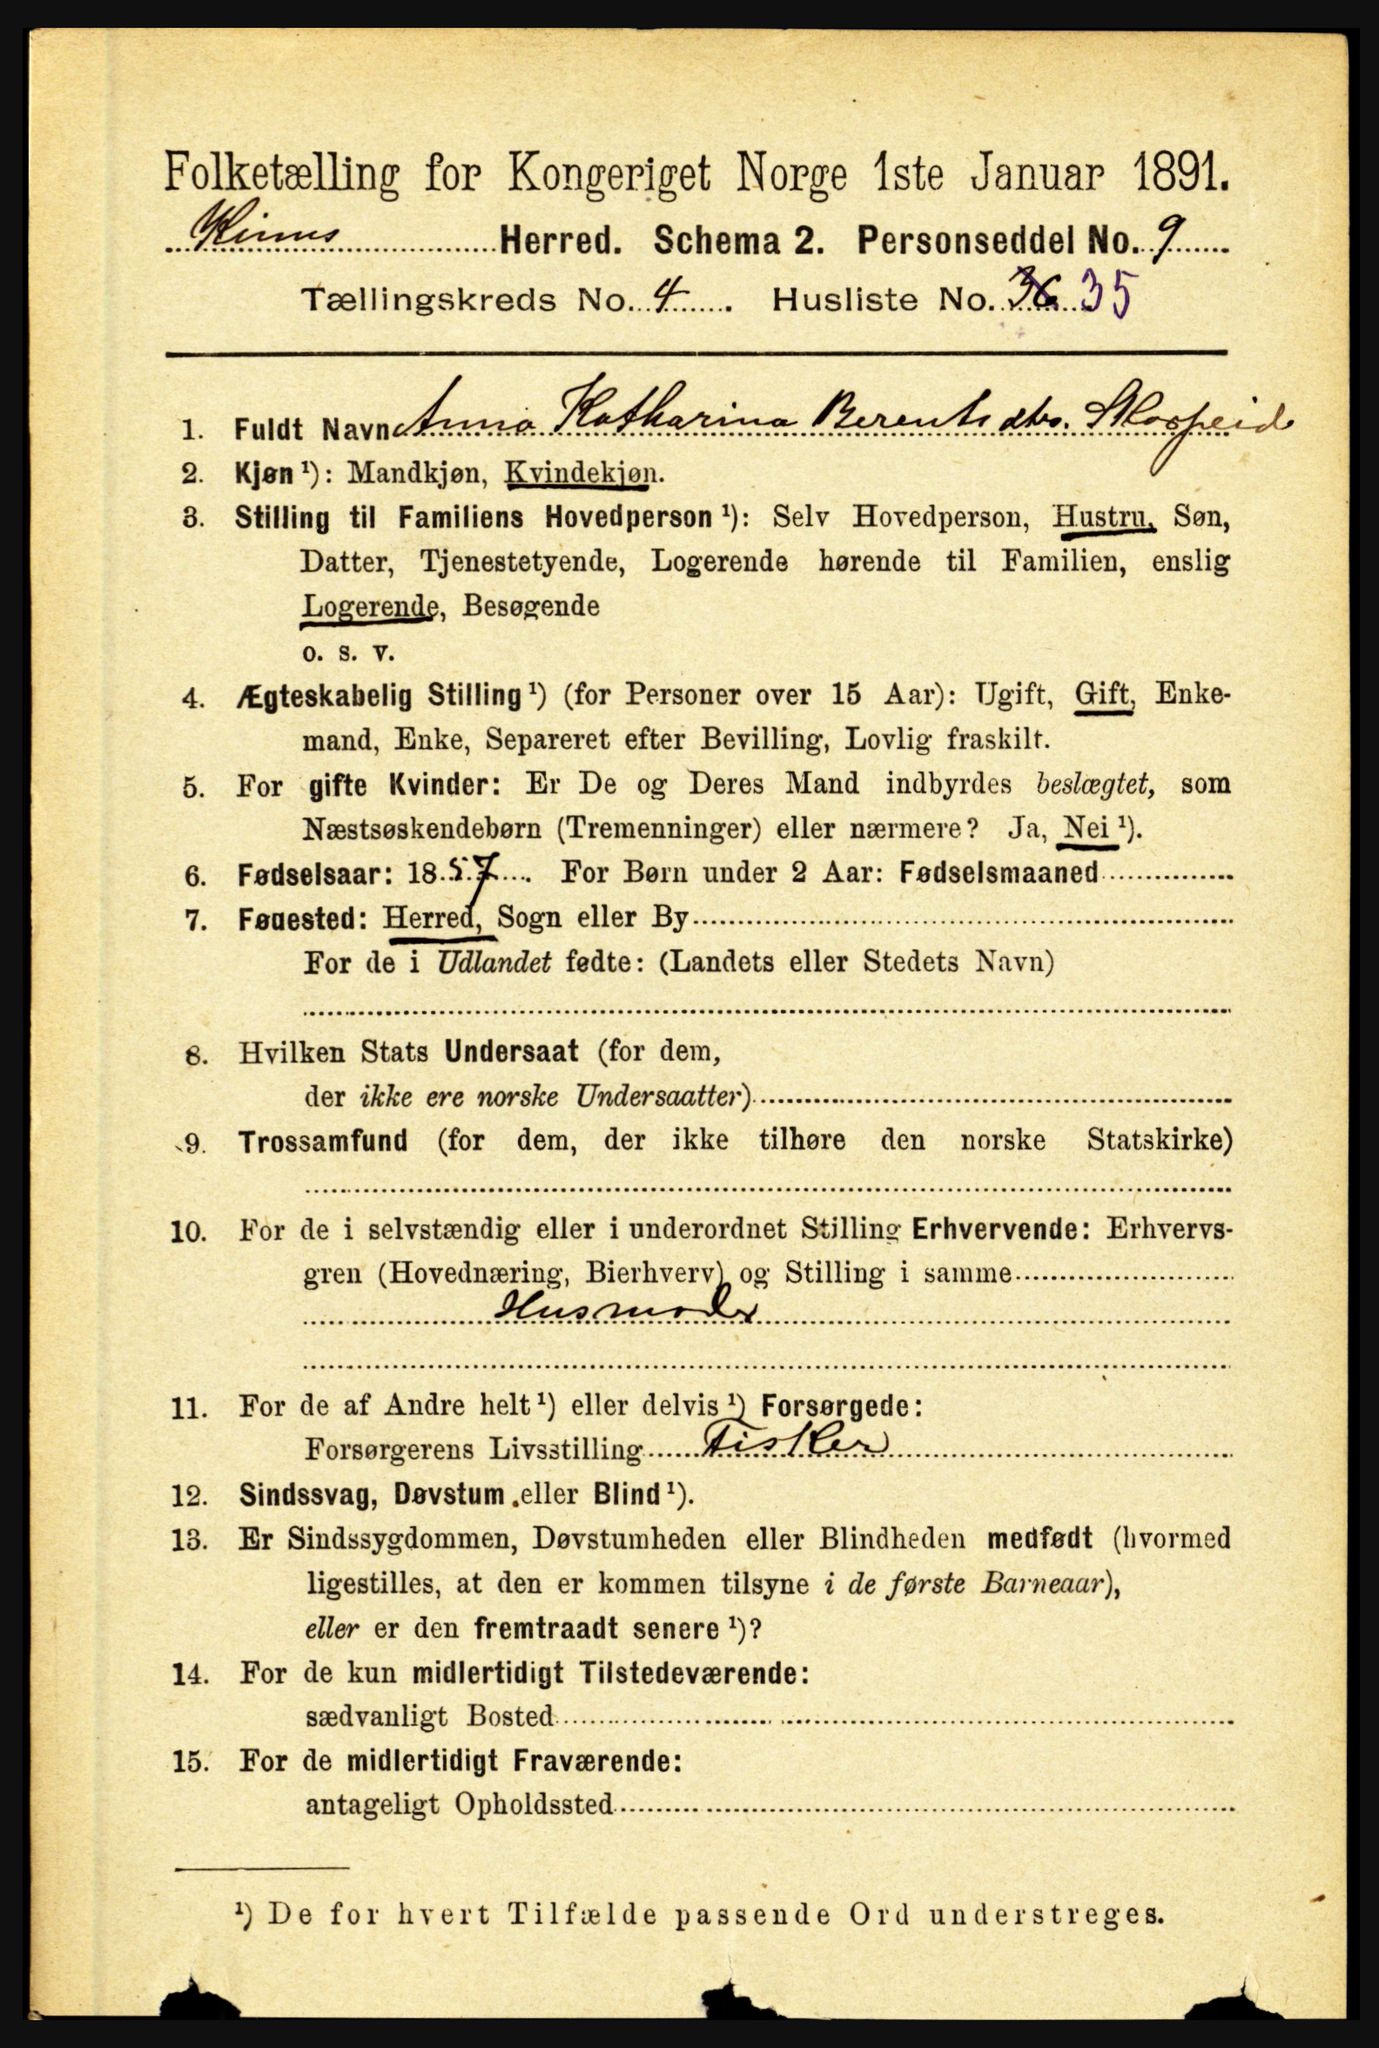 Folketælling for Kongeriget Norge 1ste Januar 1891.
Kinns Herred. Schema 2. Personseddel No. 9
Tællingskreds No. 4 . Husliste No. 36 35
1. Fuldt Navn Anna Katharina Berentsdtr. Skorpeid
2. Kjøn ¹): Mandkjøn, Kvindekjøn.
3. Stilling til Familiens Hovedperson ¹): Selv Hovedperson, Hustru, Søn,
Datter, Tjenestetyende, Logerende hørende til Familien, enslig
Logerende, Besøgende
o. s. v.
4. Ægteskabelig Stilling ¹) (for Personer over 15 Aar): Ugift, Gift, Enke-
mand, Enke, Separeret efter Bevilling, Lovlig fraskilt.
5. For gifte Kvinder: Er De og Deres Mand indbyrdes beslægtet, som
Næstsøskendebørn (Tremenninger) eller nærmere? Ja, Nei ¹).
6. Fødselsaar: 1857. For Børn under 2 Aar: Fødselsmaaned
7. Fødested: Herred, Sogn eller By
For de i Udlandet fødte: (Landets eller Stedets Navn)
8. Hvilken Stats Undersaat (for dem,
der ikke ere norske Undersaatter)
9. Trossamfund (for dem, der ikke tilhøre den norske Statskirke)
10. For de i selvstændig eller i underordnet Stilling Erhvervende: Erhvervs-
gren (Hovednæring, Bierhverv) og Stilling i samme
Husmoder
11. For de af Andre helt ¹) eller delvis ¹) Forsørgede:
Forsørgerens Livsstilling Fisker
12. Sindssvag, Døvstum eller Blind ¹).
13. Er Sindssygdommen, Døvstumheden eller Blindheden medfødt (hvormed
ligestilles, at den er kommen tilsyne i de første Barneaar),
eller er den fremtraadt senere ¹)?
14. For de kun midlertidigt Tilstedeværende:
sædvanligt Bosted
15. For de midlertidigt Fraværende:
antageligt Opholdssted
¹) De for hvert Tilfælde passende Ord understreges.